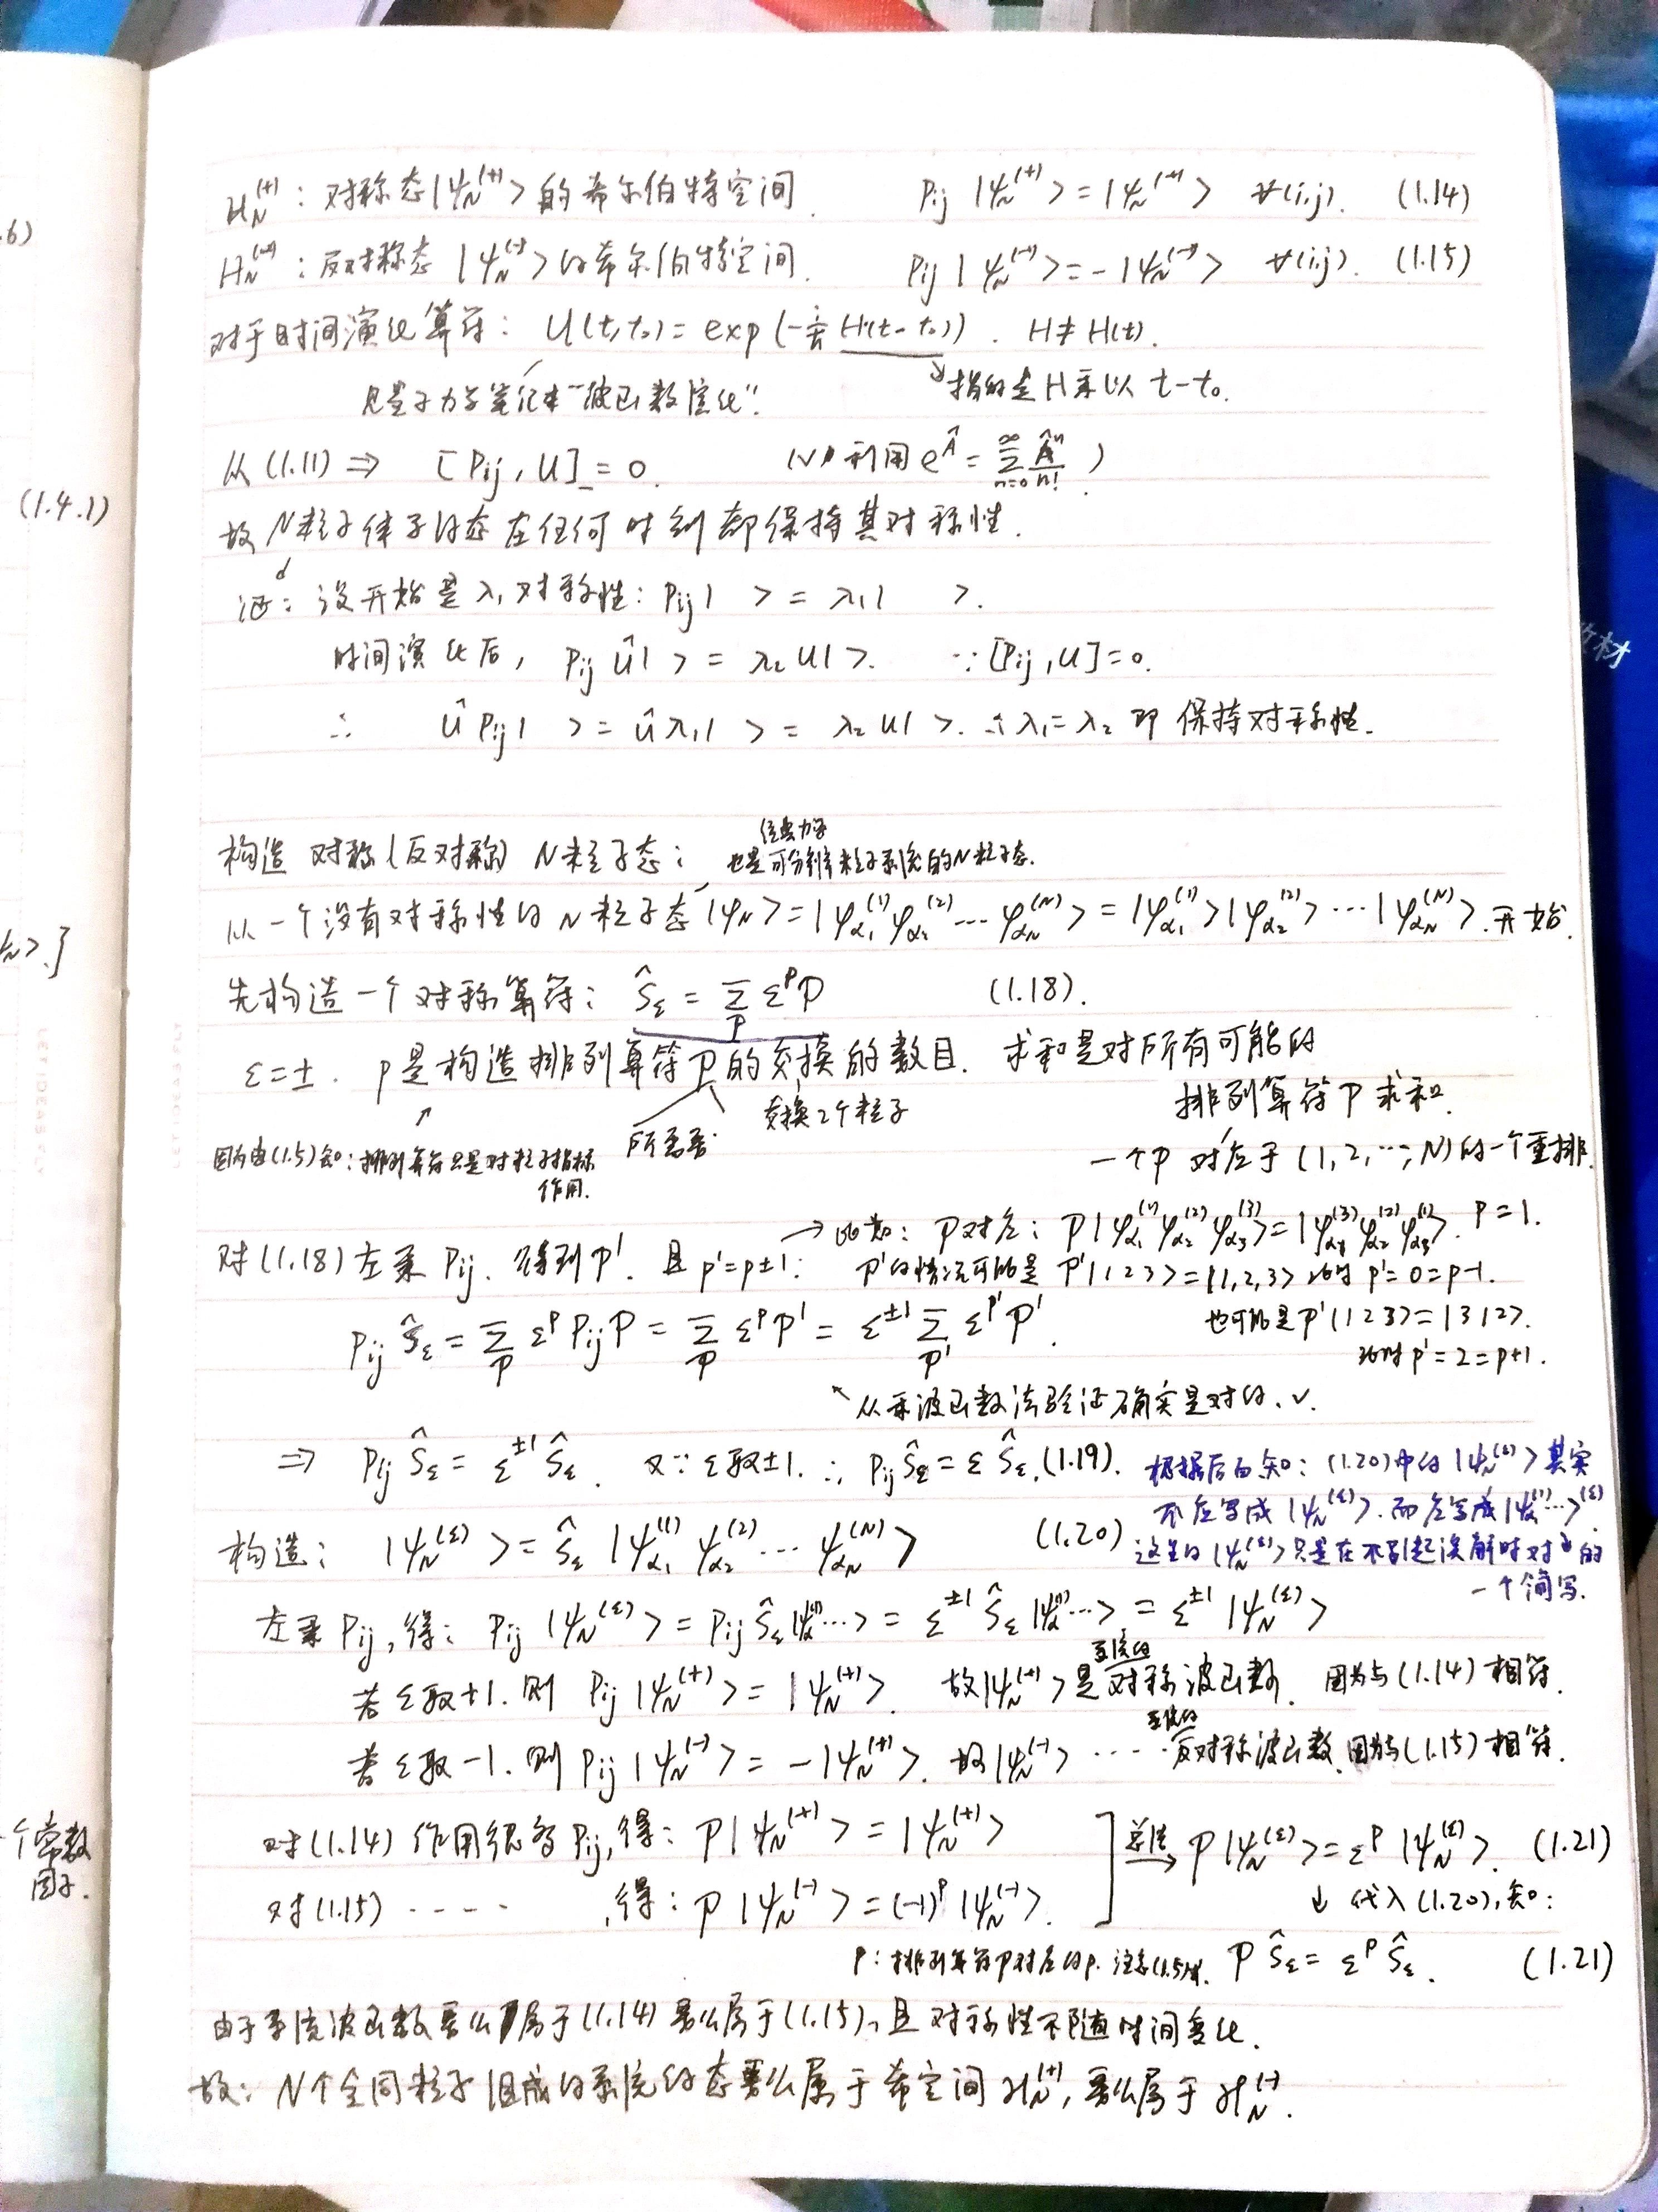 H_N^(+): 对称态|ψ_N^(+)> 的希尔伯特空间. P_ij |ψ_N^(+)> = |ψ_N^(+)> ∀(i,j). (1.14)
H_N^(-): 反对称态 |ψ_N^(-)> 的希尔伯特空间. P_ij |ψ_N^(-)> = -|ψ_N^(-)> ∀(i,j). (1.15)
对于时间演化算符: U(t,t₀) = exp(-i/ħ H(t-t₀)). H ≠ H(t).
见量子力学笔记本"波函数演化". 指的是H乘以 t-t₀.
从(1.11) ⇒ [P_ij, U] = 0. (利用 e^Â = Σ_{n=0}^∞ Â^n/n!)
故N粒子体系的态在任何时刻都保持其对称性.
证: 设开始是λ₁对称性: P_ij| > = λ₁| >.
时间演化后, P_ij Û| > = λ₂ U| >. ∵ [P_ij, U] = 0.
∴ Û P_ij| > = Û λ₁| > = λ₂ U| >. ∴ λ₁ = λ₂ 即保持对称性.
构造 对称(反对称) N粒子态:
经典力学
也是可分辨粒子系统的N粒子态.
从一个没有对称性的N粒子态 |ψ_N> = |ψ_α₁^(1) ψ_α₂^(2) ⋯ ψ_αN^(N)> = |ψ_α₁^(1)>|ψ_α₂^(2)> ⋯ |ψ_αN^(N)>. 开始.
先构造一个对称算符: Ŝ_ε = Σ_P ε^p P (1.18).
ε=±. p是构造排列算符P的交换的数目. 求和是对所有可能的
排列算符P求和.
所需要 交换2个粒子
一个P对应于(1,2,⋯,N)的一个重排.
因为由(1.5)知: 排列算符只是对粒子指标
作用.
对(1.18)左乘 P_ij. 得到P'. 且 p'=p±1: → 比如: P对应: P|ψ_α₁^(1) ψ_α₂^(2) ψ_α₃^(3)> = |ψ_α₁^(3) ψ_α₂^(2) ψ_α₃^(1)>. p=1.
P'的情况可能是 P'|1 2 3> = |1,2,3> 此时 p'=0=p-1.
P_ij Ŝ_ε = Σ_P ε^p P_ij P = Σ_P ε^p P' = ε^±1 Σ_P' ε^p' P'. 也可能是P'|1 2 3> = |3 1 2>.
此时p'=2=p+1.
从乘波函数法验证确实是对的. ✓.
⇒ P_ij Ŝ_ε = ε^±1 Ŝ_ε. 又∵ ε取±1. ∴ P_ij Ŝ_ε = ε Ŝ_ε. (1.19).
根据后面知: (1.20)中的 |ψ_N^(ε)> 其实
不应写成 |ψ_N^(ε)>. 而应写成 |ψ_α^(1)⋯>^(ε).
构造: |ψ_N^(ε)> = Ŝ_ε |ψ_α₁^(1) ψ_α₂^(2) ⋯ ψ_αN^(N)> (1.20)
这里的|ψ_N^(ε)>只是在不引起误解时对 的
一个简写.
左乘 P_ij, 得: P_ij |ψ_N^(ε)> = P_ij Ŝ_ε |ψ_α^(1)⋯> = ε^±1 Ŝ_ε |ψ_α^(1)⋯> = ε^±1 |ψ_N^(ε)>
若ε取+1. 则 P_ij |ψ_N^(+)> = |ψ_N^(+)>. 故|ψ_N^(+)>是系统的对称波函数. 因为与(1.14)相符.
若ε取-1. 则 P_ij |ψ_N^(-)> = -|ψ_N^(+)>. 故|ψ_N^(-)> ⋯⋯ 系统的反对称波函数. 因为与(1.15)相符.
对(1.14)作用很多P_ij, 得: P|ψ_N^(+)> = |ψ_N^(+)> 总结→ P|ψ_N^(ε)> = ε^p |ψ_N^(ε)>. (1.21)
对(1.15) ⋯⋯, 得: P|ψ_N^(-)> = (-1)^p |ψ_N^(-)>. ↓ 代入(1.20), 知:
p: 排列算符P对应的p. P Ŝ_ε = ε^p Ŝ_ε. (1.21)
由于系统波函数要么属于(1.14)要么属于(1.15), 且对称性不随时间变化.
故: N个全同粒子组成的系统的态要么属于希空间H_N^(+), 要么属于H_N^(-).
.6)
(1.4.1)
>.]
一个常数
因子.
教材